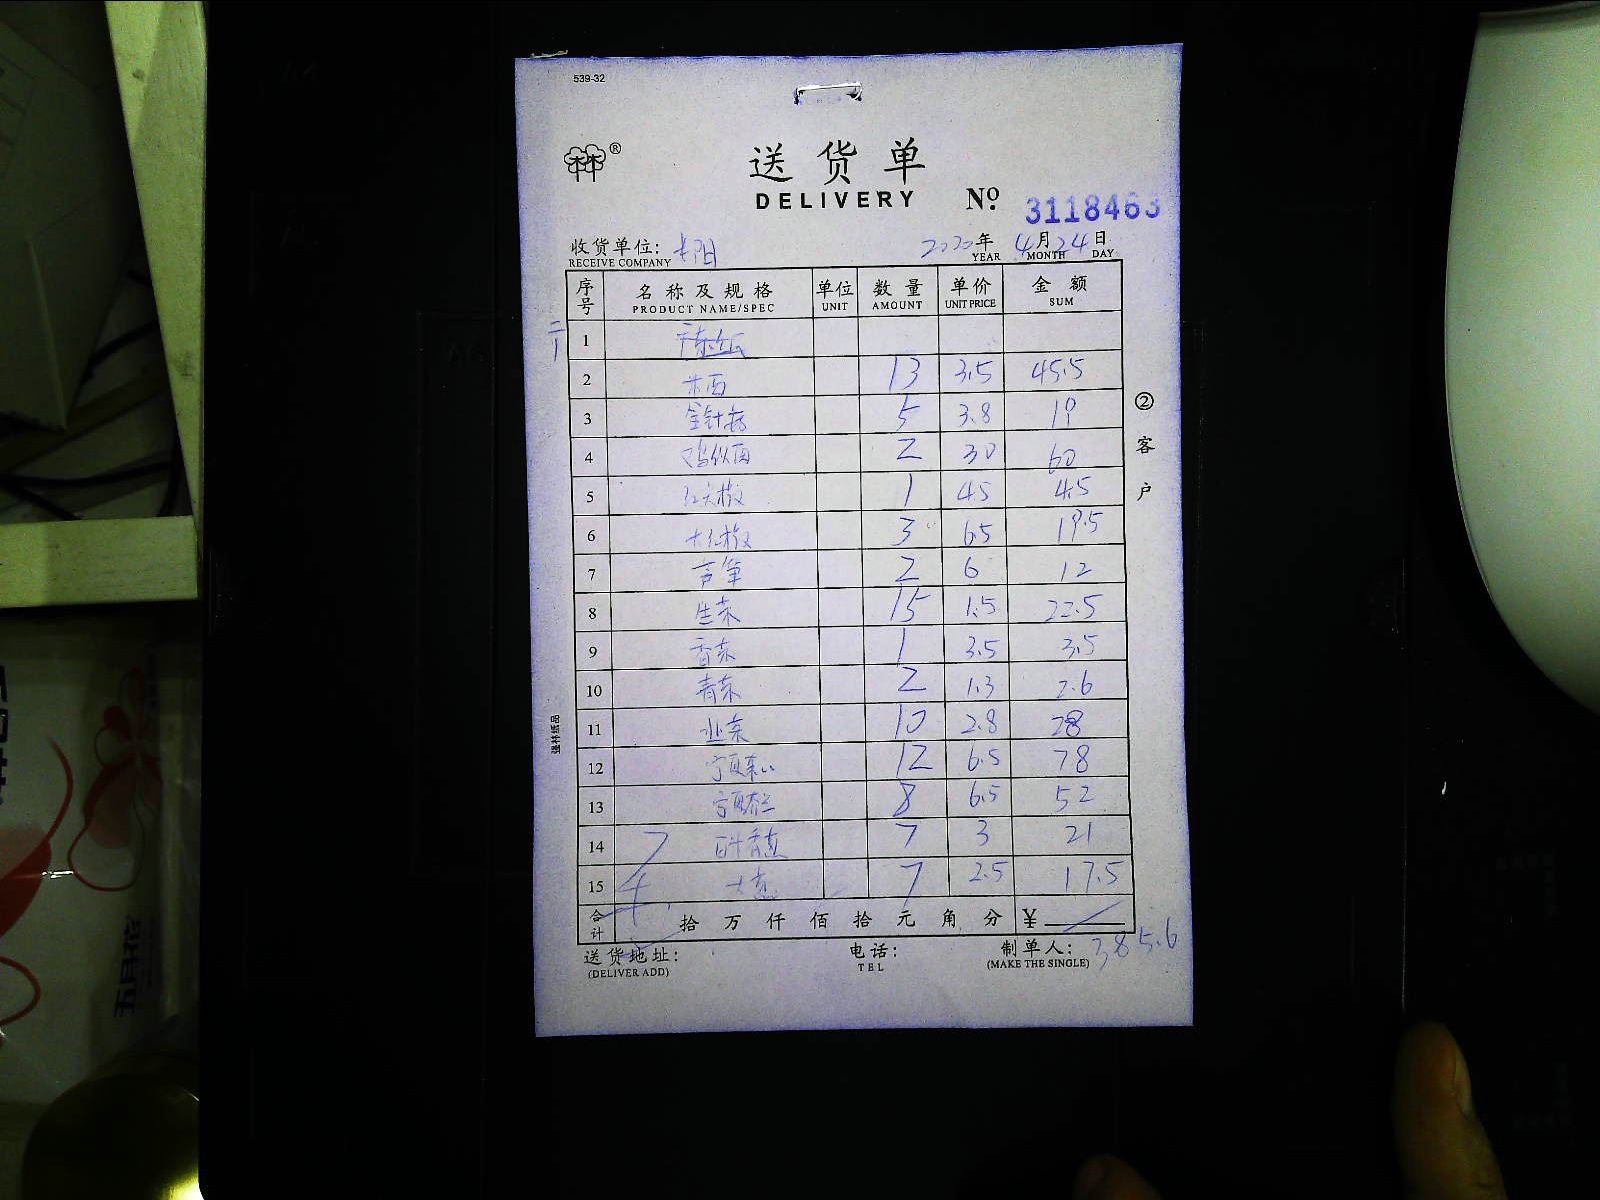 539-32
®
送货单
DELIVERY № 3118463
收货单位: 长阳 2020年 4月 24日
RECEIVE COMPANY YEAR MONTH DAY
序号 名称及规格 单位 数量 单价 金额
PRODUCT NAME/SPEC UNIT AMOUNT UNIT PRICE SUM
1
2 本西 13 3.5 45.5
3 金针菇 5 3.8 19
4 2 30 60
5 红尖椒 1 45 4.5
6 大红椒 3 6.5 19.5
7 芦笋 2 6 12
8 生菜 15 1.5 22.5
9 香菜 1 3.5 3.5
10 青菜 2 1.3 2.6
11 韭菜 10 2.8 28
12 宁夏菜心 12 6.5 78
13 8 6.5 52
14 7 3 21
15 7 2.5 17.5
74
合计 拾 万 仟 佰 拾 元 角 分 ¥
385.6
送货地址: 电话: 制单人:
(DELIVER ADD) TEL (MAKE THE SINGLE)
②客户
强林纸品
五月花